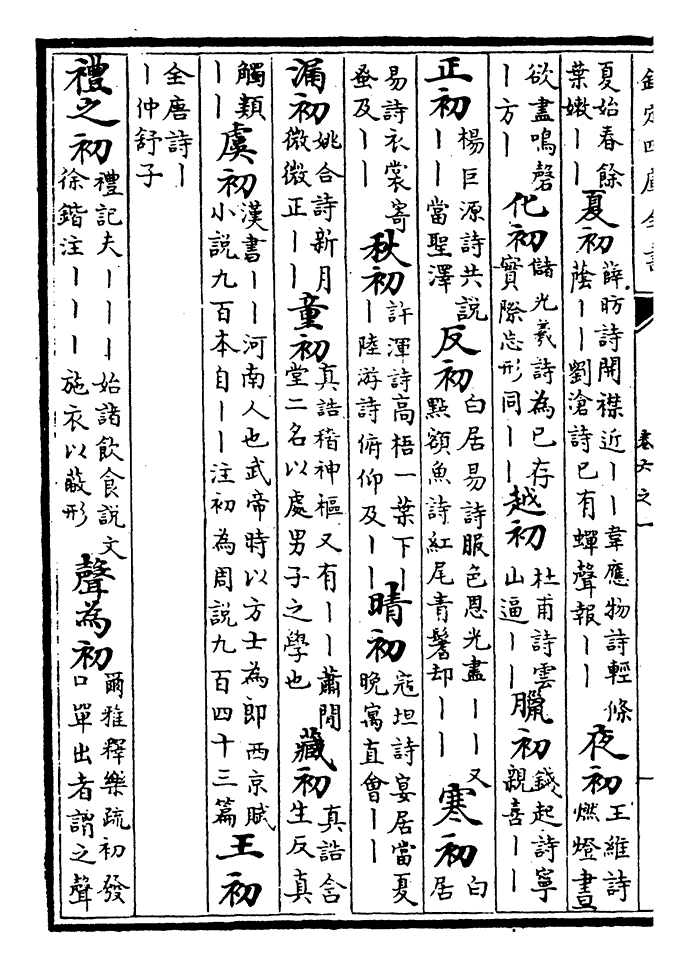 欽定四庫全書 卷六之一
夏始春餘葉嫩丨丨 夏初 薛昉詩開襟近丨丨韋應物詩輕條蔭丨丨劉滄詩已有蟬聲報丨丨 夜初 王維詩燃燈晝
欲盡鳴磬丨方丨 化初 儲光羲詩為已存實際忘形同丨丨 越初 杜甫詩雲山逼丨丨 臘初 錢起詩寧親喜丨丨
正初 楊巨源詩共説丨丨當聖澤 反初 白居易詩服色恩光盡丨丨又點額魚詩紅尾青鬐却丨丨 寒初 白居
易詩衣裳寄蚤及丨丨 秋初 許渾詩高梧一葉下丨丨陸游詩俯仰及丨丨 晴初 寇坦詩宴居當夏晚寓直會丨丨
漏初 姚合詩新月微微正丨丨 童初 真誥稽神樞又有丨丨蕭閒堂二名以處男子之學也 藏初 真誥含生反真
觸類丨丨 虞初 漢書丨丨河南人也武帝時以方士為郎西京賦小説九百本自丨丨注初為周説九百四十三篇 王初
全唐詩丨丨仲舒子
禮之初 禮記夫丨丨丨始諸飲食説文徐鍇注丨丨丨施衣以蔽形 聲為初 爾雅釋樂疏初發口單出者謂之聲